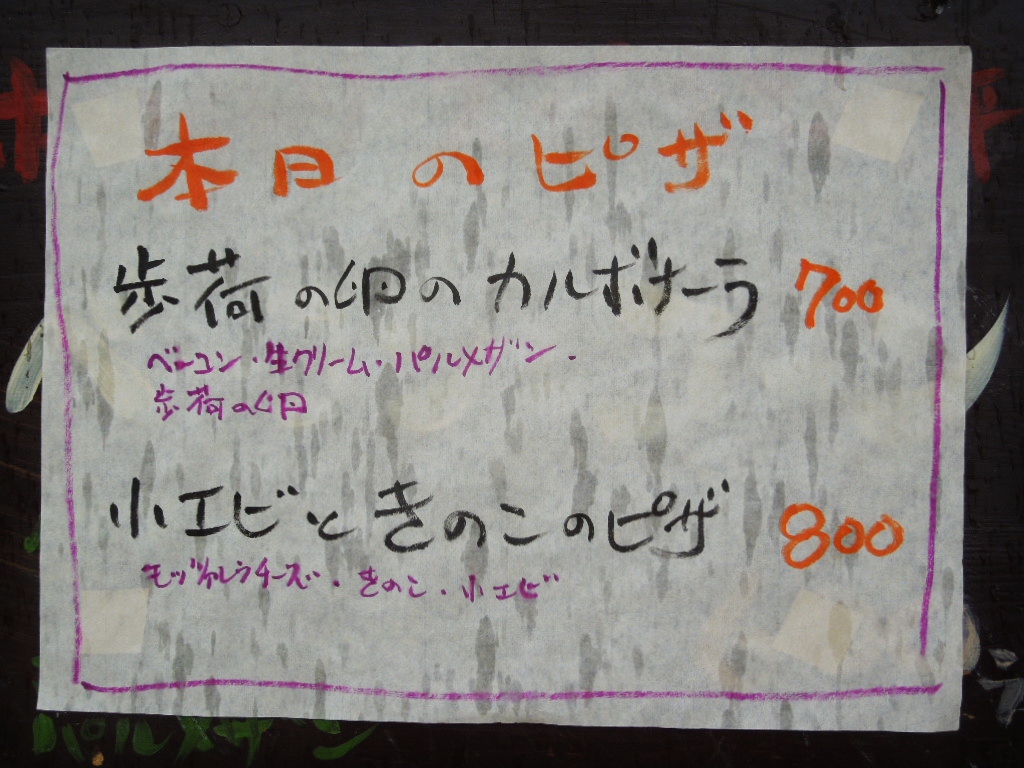 本日のピザ
歩荷の卵のカルボナーラ 700
ベーコン・生クリーム・パルメザン・
歩荷の卵
小エビときのこのピザ 800
モッツァレラチーズ・きのこ・小エビ
パルメザン